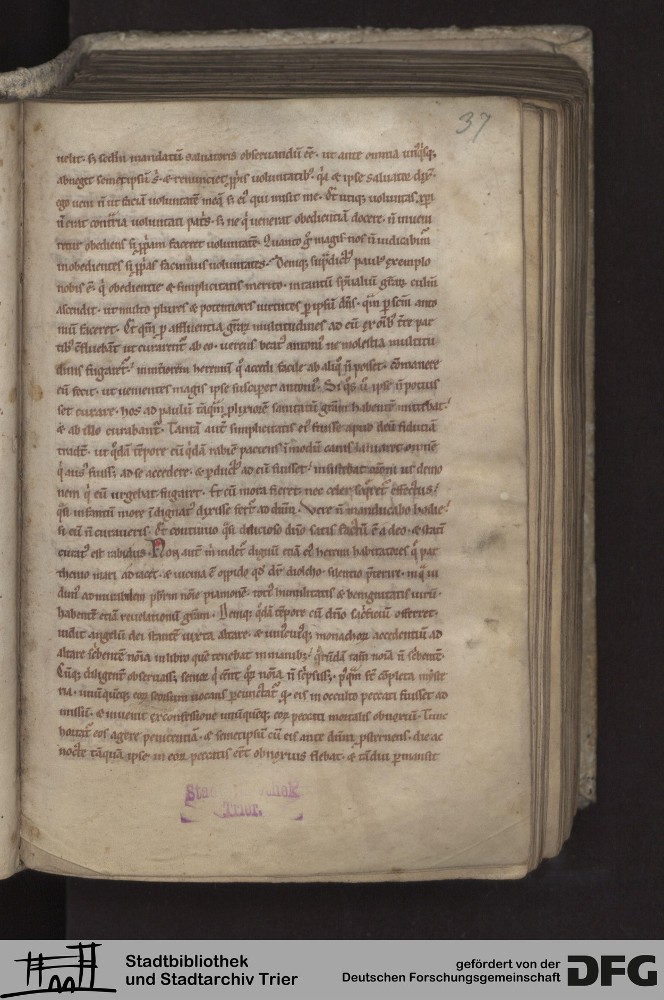 37
uelit. sꝫ scd̅m mandatu̅ saluatoris obseruandu̅ ee̅. ut ante omnia unꝰqꝫ
abneget semetipsu̅ & renunciet ꝓpriis uoluntatibꝰ. q̇a & ipse saluator
ego ueni n̅ ut facia̅ uoluntate̅ mea̅ sꝫ eiꝰ qui misit me. Et utiqꝫ uoluntas xp̅i
n̅ erat cont̅ria uoluntati pat̅s. sꝫ ne q̇ uenerat obedientia̅ docere. n̅ inueni
retur obediens si ꝓpria̅ faceret uoluntate̅. Quanto g̊ magis nos n̅ iudicabim̅
inobedientes si ꝓpas faciamus uoluntates. Deniqꝫ paulꝰ exemplo
nobis e̅. q̇ obedientie & simplicitatis merito. in tantu̅ sp̅ualiu̅ culm̅
ascendit. ut multo plures & potentiores uirtutes ꝑ ipsu̅ dn̅s. qua̅ ꝑ sc̅m anto
niu̅ faceret. Et ꝑ affluentia multitudines ad eu̅ ex om̅ibꝰ t̅re par
tibꝰ ut curarent ab eo. ueritus beatꝰ antoniꝰ ne molestia multitu
dinis fugaret. interiore̅ heremu̅ q̇ accedi facile ab aliq̇ n̅ posset. co̅manere
eu̅ fecit. ut uenientes magis ipse susciperet antoniꝰ. Si q̇s u̅ ipse n̅ potuis
set curare. hos ad paulu̅ sanitatu̅ gr̅am habente̅ mittebat.
& ab illo curabant̅. Tanta̅ aut̅ simplicitatis eiꝰ fuisse apud deu̅ fiducia̅
tradt̅. ut q̇da̅ te̅pore cu̅ q̇da̅ rabie̅ paciens i̅ modu̅ canis laniaret omne̅
q̇ ausꝰ fuiss̅; ad se accedere. & ꝑductꝰ ad eu̅ fuisset. insistebat ut demo
nem q̇ eu̅ urgebat fugaret. Et cu̅ mora fieret. nec celer effectus.
q̇si infantu̅ more i̅dignatꝰ dixisse fert̅ ad dn̅m. Vere n̅ manducabo hodie
si eu̅ n̅ curaueris. Et continuo q̇si delicioso dn̅o satis factu̅ e̅ a deo. & stati̅
curatꝰ est rabidus. Non aut̅ m̅ indet̅ dignu̅ etia̅ el heremi habitatores q̇ par
thenio mari adiacet. & uicina e̅ oppido qd̅ dr̅ diolcho. silentio p̅terire. in q̇ ui
dimꝰ admirabilem pb̅rm no̅ie piamone̅. totiꝰ humilitatis & benignitatis uiru̅.
habente̅ etia̅ reuelationu̅ gr̅am. Deniqꝫ q̇da̅ te̅pore cu̅ dn̅o sac̅ficiu̅ offerret.
uidit angelu̅ dei stante̅ iuxta altare. & uniꝰcuiꝰqꝫ monachoꝝ accedentiu̅ ad
altare sc̅bente̅ no̅ia in libro que̅ tenebat in manibꝫ. q̇runda̅ tam̅ no̅ia n̅ sc̅bente̅.
Cu̅qꝫ diligent̅ obseruass̅; senior q̇ ee̅nt q̇ꝝ no̅ia n̅ sc̅psiss̅;. ṗqua̅ st̅ co̅pleta myste
ria. unu̅que̅qꝫ eoꝝ seorsum uocans ꝑcunctat̅ q̇ eis in occulto peccati fuisset ad
missu̅. & inuenit ex confessione unu̅que̅qꝫ eoꝝ peccati mortalis obnoxiu̅. Tunc
hortat̅ eos agere penitentia̅. & semetipsu̅ cu̅ eis ante dn̅m p̅sternens. die ac
nocte ta̅qua̅ ipse in eoꝝ peccatis e̅et obnoxius flebat. & ta̅diu ꝑmansit
Stadtbibliothek
Trier.
Stadtbibliothek
und Stadtarchiv Trier
gefördert von der
Deutschen Forschungsgemeinschaft
DFG